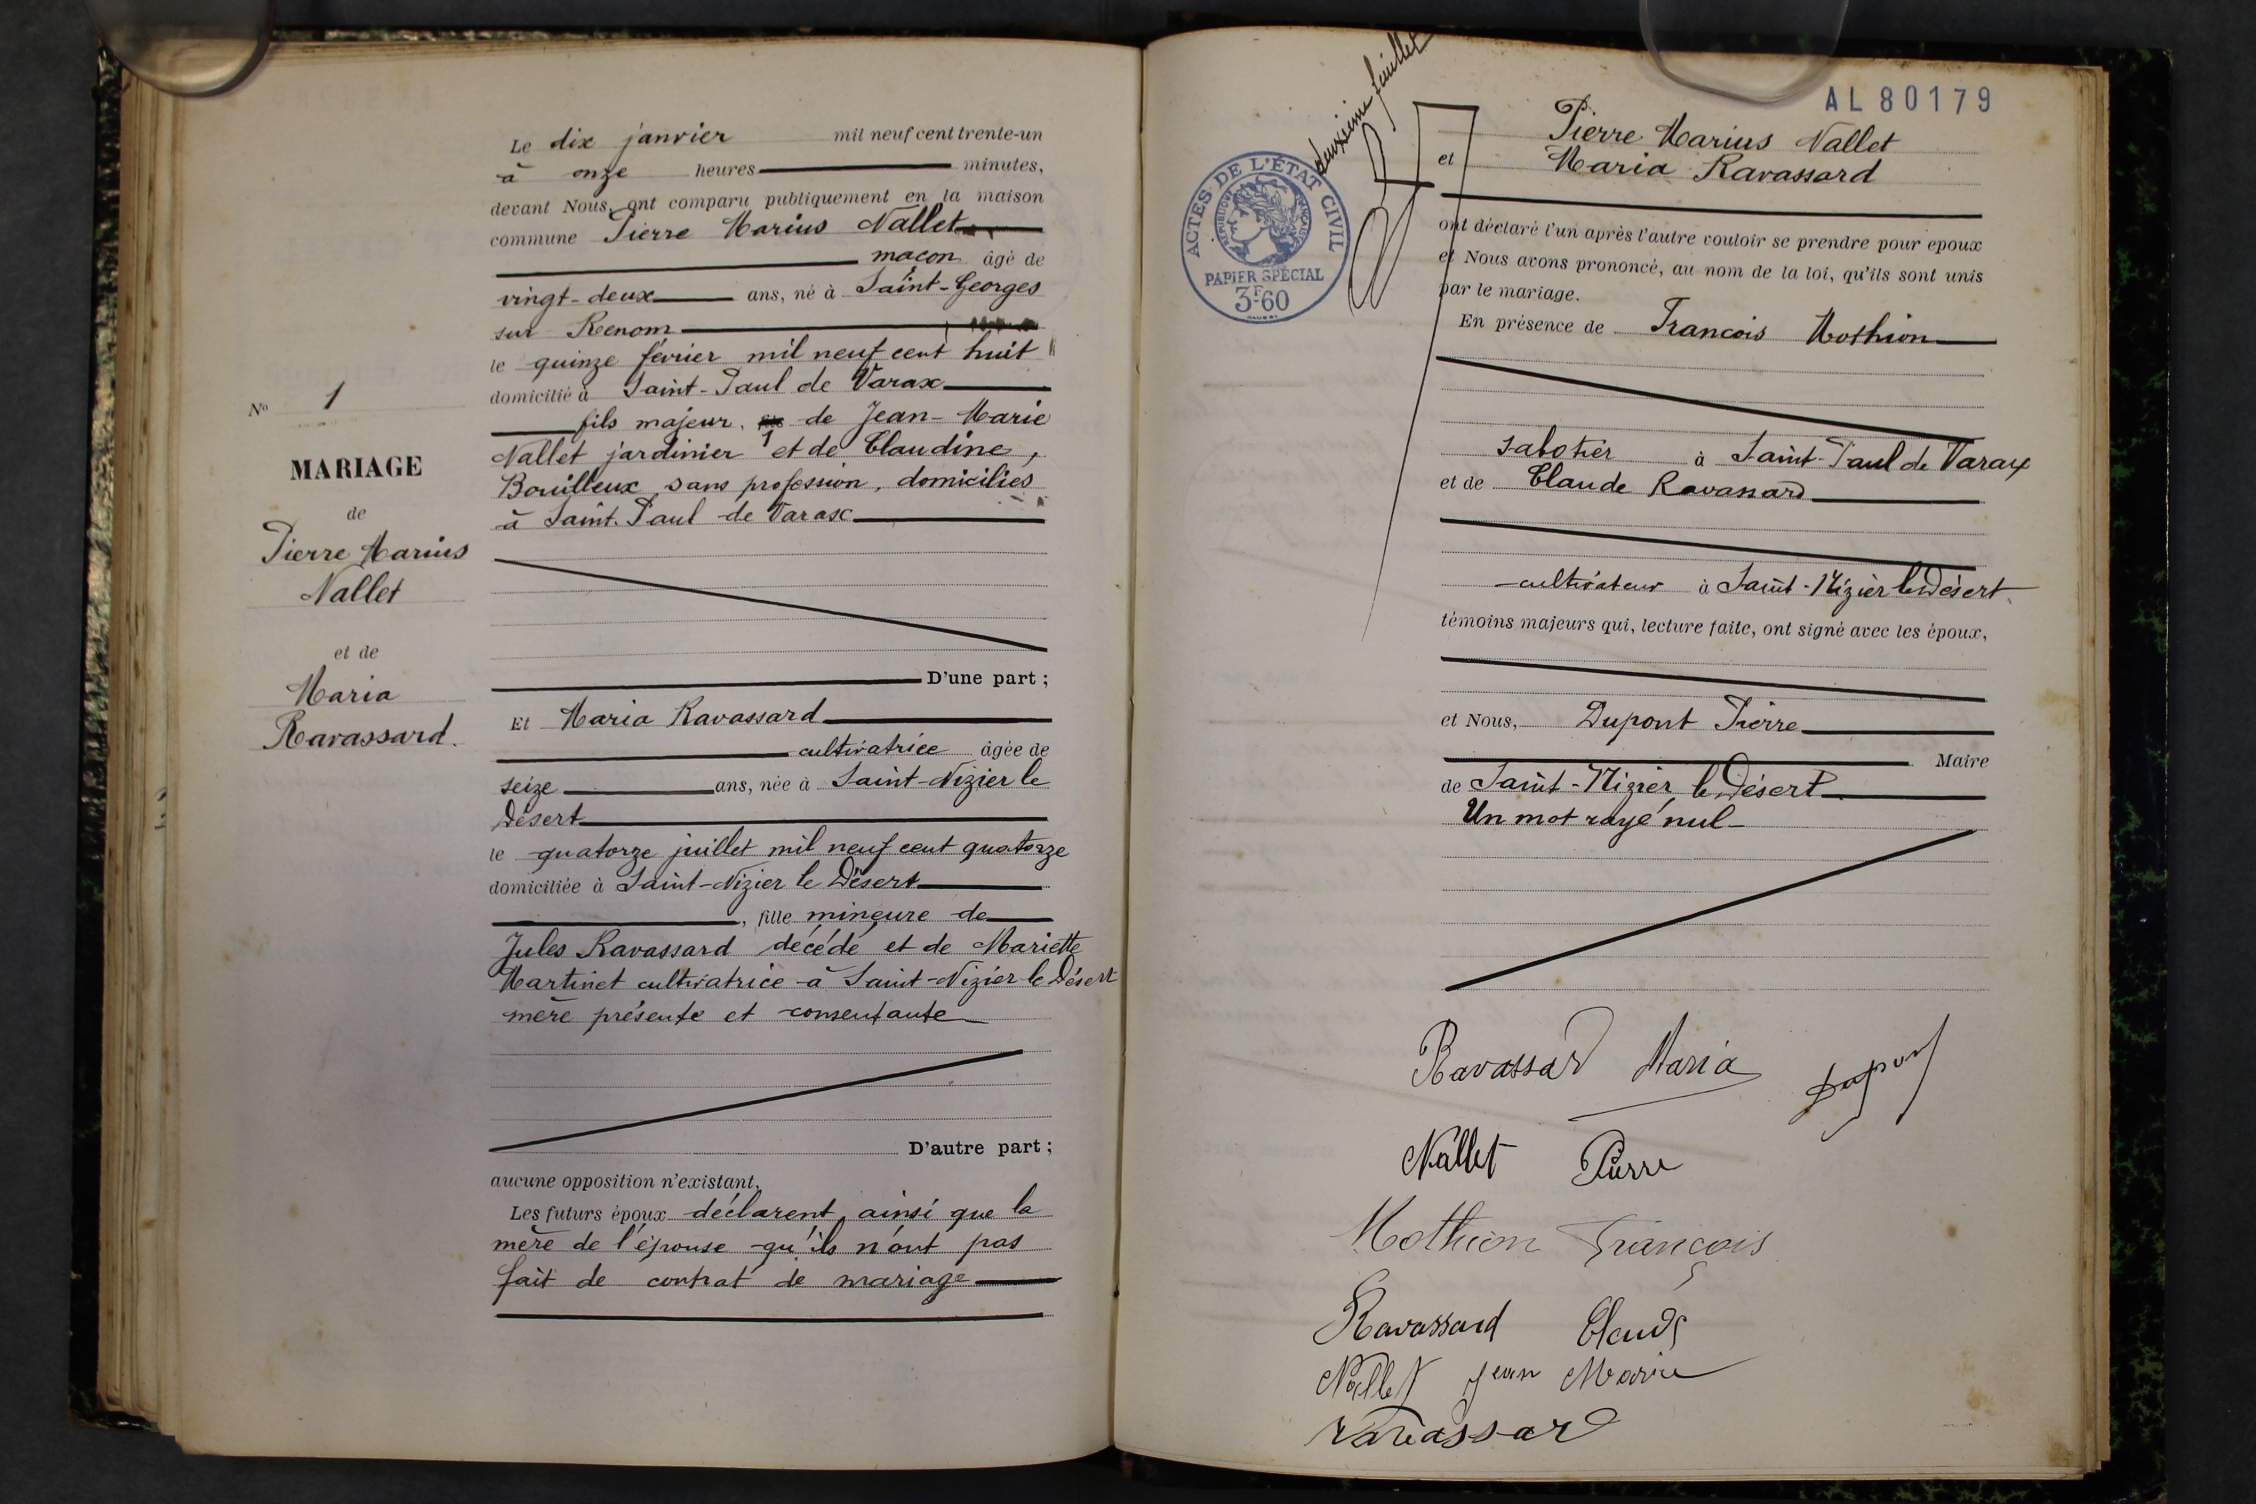 N° 1
MARIAGE
de
Pierre Marius
Nallet
et de
Maria
Ravassard.
Le dix janvier mil neuf cent trente-un
à onze heures minutes,
devant Nous, ont comparu publiquement en la maison
commune Pierre Marius Nallet
maçon âgé de
vingt-deux ans, né à Saint-Georges
sur Renom
le quinze février mil neuf cent huit
domicilié à Saint-Paul de Varax
fils majeur, de Jean-Marie
Nallet jardinier et de Claudine,
Bouilleux sans profession, domiciliés
à Saint-Paul de Varax
D'une part ;
Et Maria Ravassard
cultivatrice âgée de
seize ans, née à Saint-Nizier le
Désert
le quatorze juillet mil neuf cent quatorze
domiciliée à Saint-Nizier le Désert
, fille mineure de
Jules Ravassard décédé, et de Mariette
Martinet cultivatrice à Saint-Nizier le Désert
mère présente et consentante
D'autre part ;
aucune opposition n'existant,
Les futurs époux déclarent, ainsi que la
mère de l'épouse qu'ils n'ont pas
fait de contrat de mariage
deuxième feuillet
AL 80179
ACTES DE L'ÉTAT CIVIL
RÉPUBLIQUE FRANÇAISE
PAPIER SPÉCIAL
3F60
Pierre Marius Nallet
et Maria Ravassard
ont déclaré l'un après l'autre vouloir se prendre pour époux
et Nous avons prononcé, au nom de la loi, qu'ils sont unis
par le mariage.
En présence de Francois Mothion
sabotier à Saint-Paul de Varax
et de Claude Ravassard
cultivateur à Saint-Nizier le Désert
témoins majeurs qui, lecture faite, ont signé avec les époux,
et Nous, Dupont Pierre
Maire
de Saint-Nizier le Désert
Un mot rayé nul
Ravassard Maria
Dupont
Nallet Pierre
Mothion François
Ravassard Claude
Nallet Jean Marie
ravassard